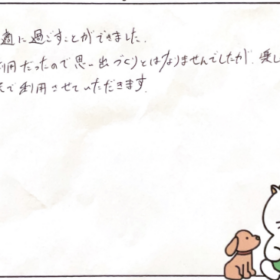 適に過ごすことができました。
利用だったので思い出づくりとはなりませんでしたが、優し
で利用させていただきます